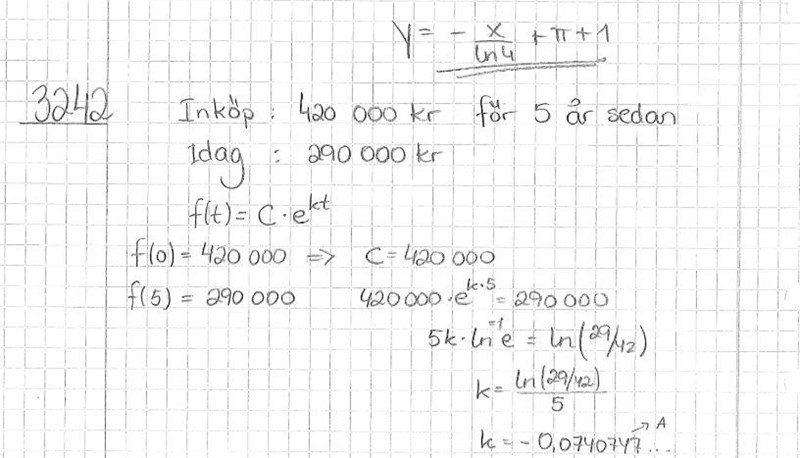 y = - x/ln4 + π + 1
3242 Inköp : 420 000 kr för 5 år sedan
Idag : 290 000 kr
f(t) = C · e^kt
f(0) = 420 000 => C = 420 000
f(5) = 290 000 420000 · e^k·5 = 290 000
5k · ln e =1 = ln(29/42)
k = ln(29/42)/5
k = - 0,0740747... → A